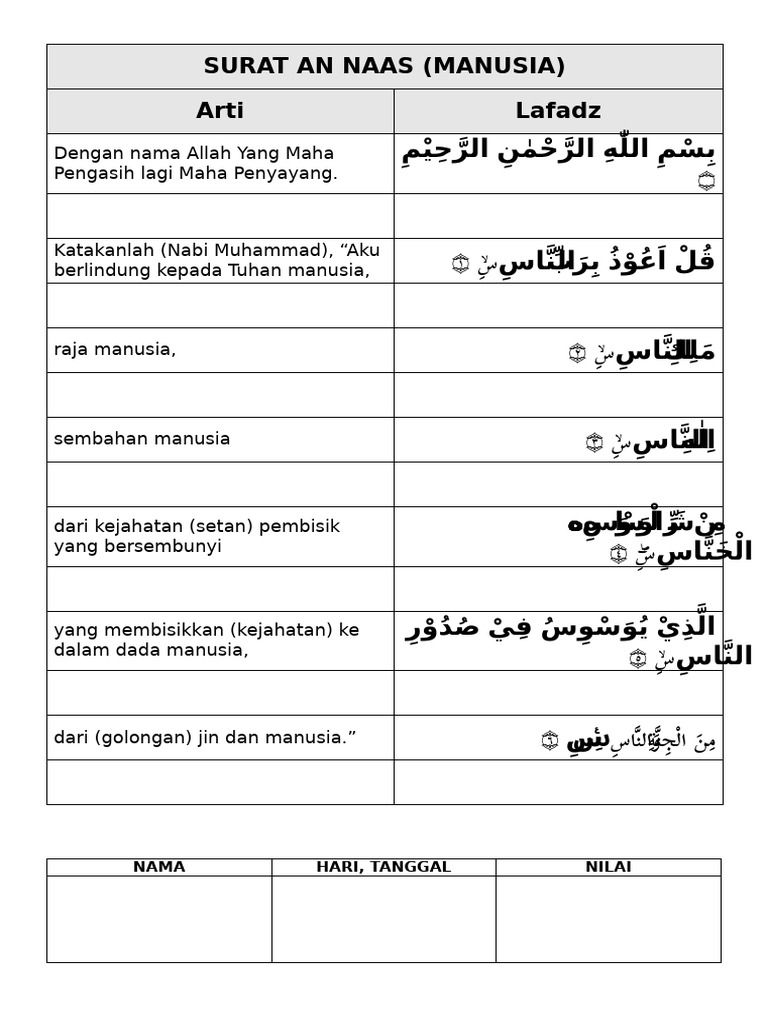 SURAT AN NAAS (MANUSIA)
Arti
Lafadz
Dengan nama Allah Yang Maha
Pengasih lagi Maha Penyayang.
بِسْمِ اللّٰهِ الرَّحْمٰنِ الرَّحِيْمِ
Katakanlah (Nabi Muhammad), “Aku
berlindung kepada Tuhan manusia,
قُلْ اَعُوْذُ بِرَبِّ النَّاسِۙ ١
raja manusia,
مَلِكِ النَّاسِۙ ٢
sembahan manusia
اِلٰهِ النَّاسِۙ ٣
dari kejahatan (setan) pembisik
yang bersembunyi
مِنْ شَرِّ الْوَسْوَاسِ
الْخَنَّاسِۖ ٤
yang membisikkan (kejahatan) ke
dalam dada manusia,
الَّذِيْ يُوَسْوِسُ فِيْ صُدُوْرِ
النَّاسِۙ ٥
dari (golongan) jin dan manusia.”
مِنَ الْجِنَّةِ وَالنَّاسِ ٦
NAMA
HARI, TANGGAL
NILAI